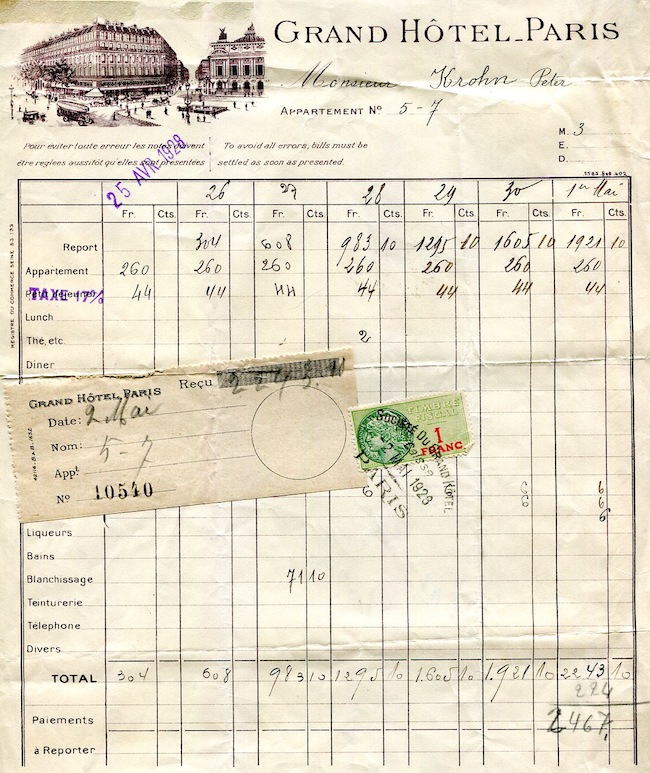 GRAND HÔTEL_PARIS
Monsieur Krohn Peter
APPARTEMENT No 5-7
M. 3
E.
D.
Pour éviter toute erreur les notes doivent être reglées aussitôt qu'elles sont présentées
To avoid all errors, bills must be settled as soon as presented.
25 AVR 1928
REGISTRE DU COMMERCE SEINE 83.133
26 27 28 29 30 1er Mai
Fr. Cts. Fr. Cts. Fr. Cts. Fr. Cts. Fr. Cts. Fr. Cts. Fr. Cts.
Report 304 608 983 10 1295 10 1605 10 1921 10
Appartement 260 260 260 260 260 260 260
TAXE 17% 44 44 44 44 44 44 44
Lunch
Thé, etc. 2
Diner
GRAND HÔTEL, PARIS Reçu
Date: 2 Mai
Nom: 5-7
Appt
No 10540
TIMBRE FISCAL
1 FRANC
SOCIÉTÉ DU GRAND HÔTEL
MAI 1928
PARIS
6 6
6
6
Liqueurs
Bains
Blanchissage 71 10
Teinturerie
Téléphone
Divers
TOTAL 304 608 983 10 1295 10 1.605 10 1.921 10 2243 10
224
Paiements 2467.
à Reporter